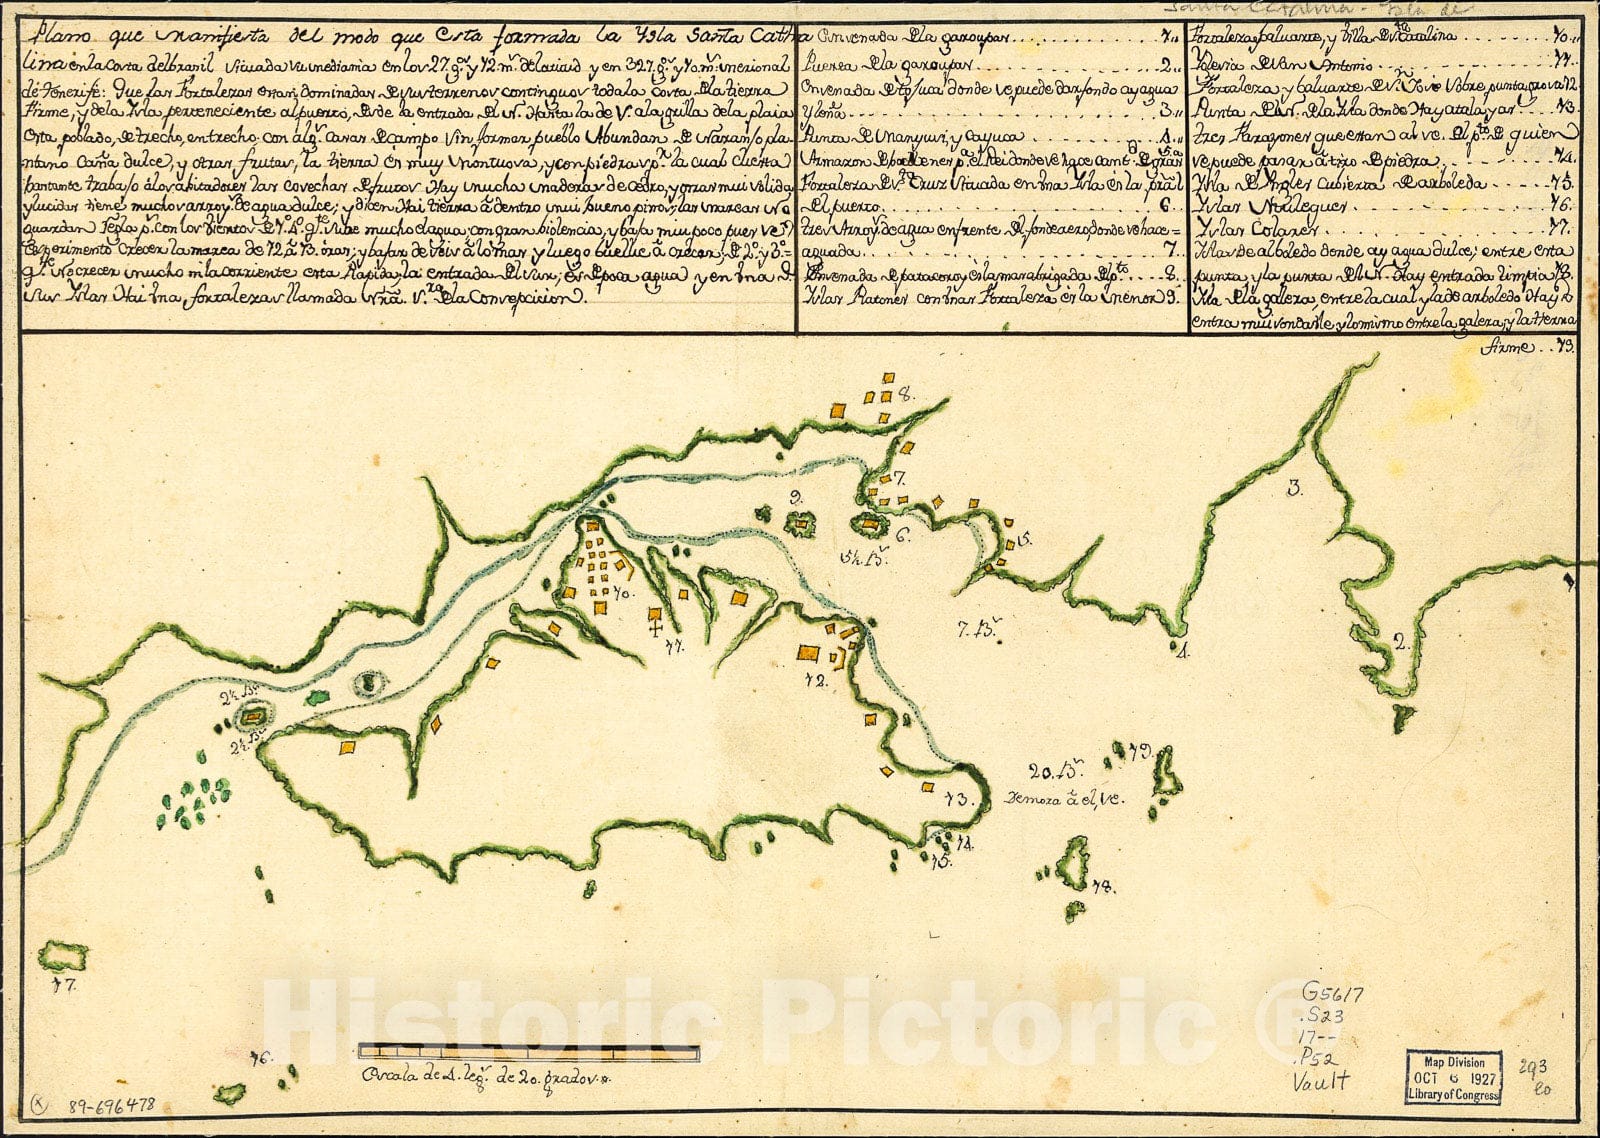 Santa Catalina - Isla de
Plano que manifiesta del modo que esta formada la Ysla Santa Catha
lina en la costa del brasil situada su mediania en los 27 gs. y 12 ms. de latitud y en 327 gs. y 10 ms. merional
de Tenerife: Que las Fortalezas estan dominadas de sus terrenos contiguos toda la costa de la tierra
firme, y de la Ysla perteneciente al puerto, desde la entrada del N. Hasta la de S. a la quilla de la plaia
esta poblado, de trecho, en trecho con algs. casas de campo sin formar pueblo Abundan de Naranjo pla-
ntano caña dulce, y otras frutas, la tierra es muy montuosa, y con piedras pr. la cual cuesta
bantante trabajo a los abitadores las cosechas de frutos Hay mucha madera de cedro, y otras mui solida
y lucidas tiene muchos arroys. de agua dulce; y dicen Hai tierra a dentro mui bueno pinos, las mareas no
guardan regla pr. con los vientos de sube mucho el agua, con gran biolencia, y baja mui poco pues se
esperimento crecer la marea de 12 a 13 oras; y bajar de seis a lo mas y luego buelve a crecer;
No crecer mucho ni la corriente esta Rapida; la entrada del Sur, es de poca agua y en una de
sus Yslas Hai una fortaleza llamada Nra. Sra. de la Concepcicion.
Ensenada de la garoupas 1
Puerta de la garoupas 2
Ensenada de donde se puede dar fondo ay agua
y leña 3
Punta de Ganchos, y Cayuca 4
Armazon de ballenas pa. el Rei donde se hace cantd. de grasa 5
Fortaleza de Sta. Cruz situada en una Ysla en la pral.
del puerto 6
tres Arroys. de agua enfrente del fondeadero, donde se hace
aguada 7
Ensenada de en la mas abrigada del pto. 8
Yslas Ratones con unas Fortaleza en la menor 9
Fortaleza, baluarte, y billa de Sta. Catalina 10
Yglesia de San Antonio 11
Fortaleza y baluarte de Sn. Jose sobre punta grosa 12
Punta del N. de la Ysla donde Hay atalayas 13
tres Farayones que estan al del pto. de quien
se puede pasar a tiro de piedra 14
Ysla de Yngles cubierta de arboleda 15
Yslas Muleques 16
Yslas Corares 17
Yslas de alboledo donde ay agua dulce; entre esta
punta y la punta del N. Hay entrada limpia 18
Ysla de la galera, entre la cual y la de arboledo Hay
entra mui sondable y lo mismo entre la galera, y la tierra
firme 19
8.
7.
9.
6.
5½ Bs.
5.
3.
1
2.
4.
7. Bs.
10.
11.
12.
2½ Bs.
2½ Bs.
20. Bs.
Demora a el,
19.
13.
14.
15.
18.
17.
16.
Escala de 4. legs. de 20. grados.
Historic Pictoric ®
G5617
.S23
17--
.P52
Vault
Map Division
OCT 6 1927
Library of Congress
293
20
89-696478